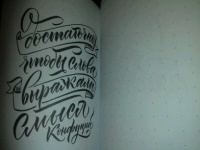 достаточно
чтобы слова
выражали
смысл
Конфуций